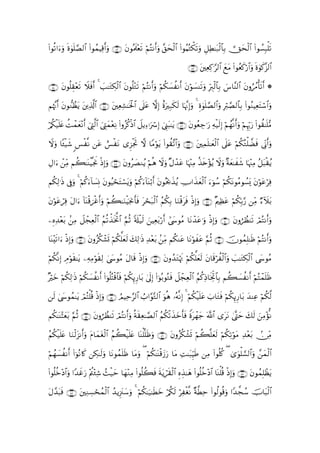 تَلۡبِسُواْ ٱلۡحَقَّ بِٱلۡبَٰطِلِ وَتَكۡتُمُواْ ٱلۡحَقَّ وَأَنتُمۡ تَعۡلَمُونَ ۝٤٢ وَأَقِيمُواْ ٱلصَّلَوٰةَ وَءَاتُواْ
ٱلزَّكَوٰةَ وَٱرۡكَعُواْ مَعَ ٱلرَّٰكِعِينَ ۝٤٣
۞ أَتَأۡمُرُونَ ٱلنَّاسَ بِٱلۡبِرِّ وَتَنسَوۡنَ أَنفُسَكُمۡ وَأَنتُمۡ تَتۡلُونَ ٱلۡكِتَٰبَۚ أَفَلَا تَعۡقِلُونَ ۝٤٤
وَٱسۡتَعِينُواْ بِٱلصَّبۡرِ وَٱلصَّلَوٰةِۚ وَإِنَّهَا لَكَبِيرَةٌ إِلَّا عَلَى ٱلۡخَٰشِعِينَ ۝٤٥ ٱلَّذِينَ يَظُنُّونَ أَنَّهُم
مُّلَٰقُواْ رَبِّهِمۡ وَأَنَّهُمۡ إِلَيۡهِ رَٰجِعُونَ ۝٤٦ يَٰبَنِيٓ إِسۡرَٰٓءِيلَ ٱذۡكُرُواْ نِعۡمَتِيَ ٱلَّتِيٓ أَنۡعَمۡتُ عَلَيۡكُمۡ
وَأَنِّي فَضَّلۡتُكُمۡ عَلَى ٱلۡعَٰلَمِينَ ۝٤٧ وَٱتَّقُواْ يَوۡمٗا لَّا تَجۡزِي نَفۡسٌ عَن نَّفۡسٖ شَيۡـٔٗا وَلَا
يُقۡبَلُ مِنۡهَا شَفَٰعَةٞ وَلَا يُؤۡخَذُ مِنۡهَا عَدۡلٞ وَلَا هُمۡ يُنصَرُونَ ۝٤٨ وَإِذۡ نَجَّيۡنَٰكُم مِّنۡ ءَالِ
فِرۡعَوۡنَ يَسُومُونَكُمۡ سُوٓءَ ٱلۡعَذَابِ يُذَبِّحُونَ أَبۡنَآءَكُمۡ وَيَسۡتَحۡيُونَ نِسَآءَكُمۡۚ وَفِي ذَٰلِكُم
بَلَآءٞ مِّن رَّبِّكُمۡ عَظِيمٞ ۝٤٩ وَإِذۡ فَرَقۡنَا بِكُمُ ٱلۡبَحۡرَ فَأَنجَيۡنَٰكُمۡ وَأَغۡرَقۡنَآ ءَالَ فِرۡعَوۡنَ
وَأَنتُمۡ تَنظُرُونَ ۝٥٠ وَإِذۡ وَٰعَدۡنَا مُوسَىٰٓ أَرۡبَعِينَ لَيۡلَةٗ ثُمَّ ٱتَّخَذۡتُمُ ٱلۡعِجۡلَ مِنۢ بَعۡدِهِۦ
وَأَنتُمۡ ظَٰلِمُونَ ۝٥١ ثُمَّ عَفَوۡنَا عَنكُم مِّنۢ بَعۡدِ ذَٰلِكَ لَعَلَّكُمۡ تَشۡكُرُونَ ۝٥٢ وَإِذۡ ءَاتَيۡنَا
مُوسَى ٱلۡكِتَٰبَ وَٱلۡفُرۡقَانَ لَعَلَّكُمۡ تَهۡتَدُونَ ۝٥٣ وَإِذۡ قَالَ مُوسَىٰ لِقَوۡمِهِۦ يَٰقَوۡمِ إِنَّكُمۡ
ظَلَمۡتُمۡ أَنفُسَكُم بِٱتِّخَاذِكُمُ ٱلۡعِجۡلَ فَتُوبُوٓاْ إِلَىٰ بَارِئِكُمۡ فَٱقۡتُلُوٓاْ أَنفُسَكُمۡ ذَٰلِكُمۡ خَيۡرٞ
لَّكُمۡ عِندَ بَارِئِكُمۡ فَتَابَ عَلَيۡكُمۡۚ إِنَّهُۥ هُوَ ٱلتَّوَّابُ ٱلرَّحِيمُ ۝٥٤ وَإِذۡ قُلۡتُمۡ يَٰمُوسَىٰ لَن
نُّؤۡمِنَ لَكَ حَتَّىٰ نَرَى ٱللَّهَ جَهۡرَةٗ فَأَخَذَتۡكُمُ ٱلصَّٰعِقَةُ وَأَنتُمۡ تَنظُرُونَ ۝٥٥ ثُمَّ بَعَثۡنَٰكُم
مِّنۢ بَعۡدِ مَوۡتِكُمۡ لَعَلَّكُمۡ تَشۡكُرُونَ ۝٥٦ وَظَلَّلۡنَا عَلَيۡكُمُ ٱلۡغَمَامَ وَأَنزَلۡنَا عَلَيۡكُمُ
ٱلۡمَنَّ وَٱلسَّلۡوَىٰۖ كُلُواْ مِن طَيِّبَٰتِ مَا رَزَقۡنَٰكُمۡۖ وَمَا ظَلَمُونَا وَلَٰكِن كَانُوٓاْ أَنفُسَهُمۡ
يَظۡلِمُونَ ۝٥٧ وَإِذۡ قُلۡنَا ٱدۡخُلُواْ هَٰذِهِ ٱلۡقَرۡيَةَ فَكُلُواْ مِنۡهَا حَيۡثُ شِئۡتُمۡ رَغَدٗا وَٱدۡخُلُواْ
ٱلۡبَابَ سُجَّدٗا وَقُولُواْ حِطَّةٞ نَّغۡفِرۡ لَكُمۡ خَطَٰيَٰكُمۡۚ وَسَنَزِيدُ ٱلۡمُحۡسِنِينَ ۝٥٨ فَبَدَّلَ